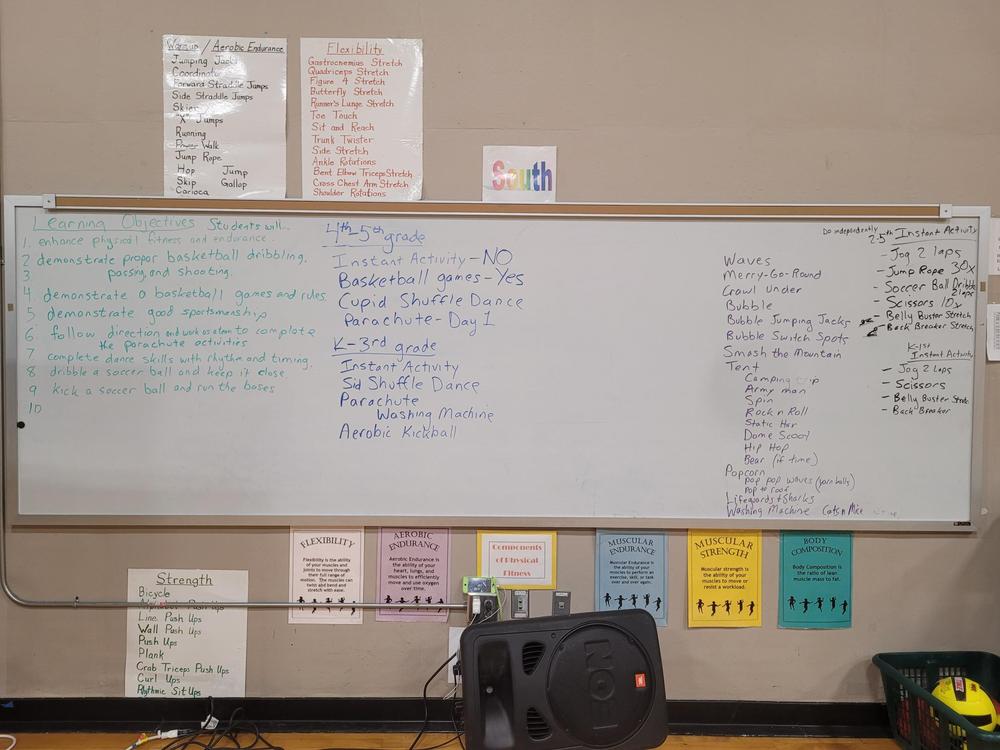 Warmup / Aerobic Endurance
Jumping Jacks
Forward Straddle Jumps
Side Straddle Jumps
"X" Jumps
Running
Power Walk
Jump Rope
Hop Jump
Skip Gallop
Carioca
Flexibility
Gastrocnemius Stretch
Quadriceps Stretch
Figure 4 Stretch
Butterfly Stretch
Runner's Lunge Stretch
Toe Touch
Sit and Reach
Trunk Twister
Side Stretch
Ankle Rotations
Bent Elbow Triceps Stretch
Cross Chest Arm Stretch
Shoulder Rotations
South
Learning Objectives Students will...
1. enhance physical fitness and endurance.
2 demonstrate propor basketball dribbling,
3 passing, and shooting.
4. demonstrate a basketball games and rules
5 demonstrate good sportsmanship
6. follow direction and work as a team to complete
the parachute activities
7 complete dance skills with rhythm and timing.
8 dribble a soccer ball and keep it close
9 kick a soccer ball and run the bases
10
4th-5th grade
Instant Activity - NO
Basketball games - Yes
Cupid Shuffle Dance
Parachute - Day 1
K-3rd grade
Instant Activity
Sid Shuffle Dance
Parachute
Washing Machine
Aerobic Kickball
Waves
Merry-Go-Round
Crawl Under
Bubble
Bubble Jumping Jacks
Bubble Switch Spots
Smash the Mountain
Tent
Camping trip
Army man
Spin
Rock n Roll
Static Hair
Dome Scoot
Hip Hop
Bear (if time)
Popcorn
Pop pop waves (yarn balls)
Pop to roof
Lifeguards + Sharks
Washing Machine Cats n Mice
Do independently
2-5th Instant Activity
- Jog 2 laps
- Jump Rope 30x
- Soccer Ball Dribble
2 laps
- Scissors 10x
- Belly Buster Stretch
- Back Breaker Stretch
K-1st
Instant Activity
- Jog 2 laps
- Scissors
- Belly Buster Stretch
- Back Breaker
Strength
Bicycle
Line Push Ups
Wall Push Ups
Push Ups
Plank
Crab Triceps Push Ups
Curl Ups
Rhythmic Sit Ups
FLEXIBILITY
Flexibility is the ability
of your muscles and
joints to move through
their full range of
motion. The muscles can
twist and bend and
stretch with ease.
AEROBIC
ENDURANCE
Aerobic Endurance is
the ability of your
heart, lungs, and
muscles to efficiently
move and use oxygen
over time.
Components
of Physical
Fitness
MUSCULAR
ENDURANCE
Muscular Endurance is
the ability of your
muscles to perform an
exercise, skill, or task
over and over again.
MUSCULAR
STRENGTH
Muscular strength is
the ability of your
muscles to move or
resist a workload.
BODY
COMPOSITION
Body Composition is
the ratio of lean
muscle mass to fat.
JBL
EON